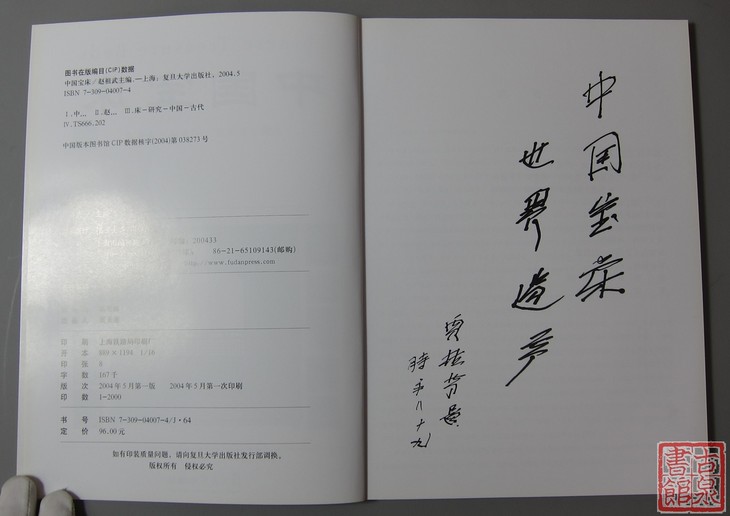 图书在版编目(CIP)数据
中国宝床/赵祖武主编.—上海:复旦大学出版社,2004.5
ISBN 7-309-04007-4
Ⅰ.中... Ⅱ.赵... Ⅲ.床-研究-中国-古代
Ⅳ.TS666.202
中国版本图书馆CIP数据核字(2004)第038273号
200433
86-21-65109143(邮购)
www.fudanpress.com
印 刷 上海
开 本 889×1194 1/16
印 张 8
字 数 107千
版 次 2004年5月第一版 2004年5月第一次印刷
印 数 1-2000
书 号 ISBN 7-309-04007-4/J·64
定 价 96.00元
如有印装质量问题,请向复旦大学出版社发行部调换。
版权所有 侵权必究
中国宝床
世界遗产
贾植芳题
时年八十九
古泉
書館